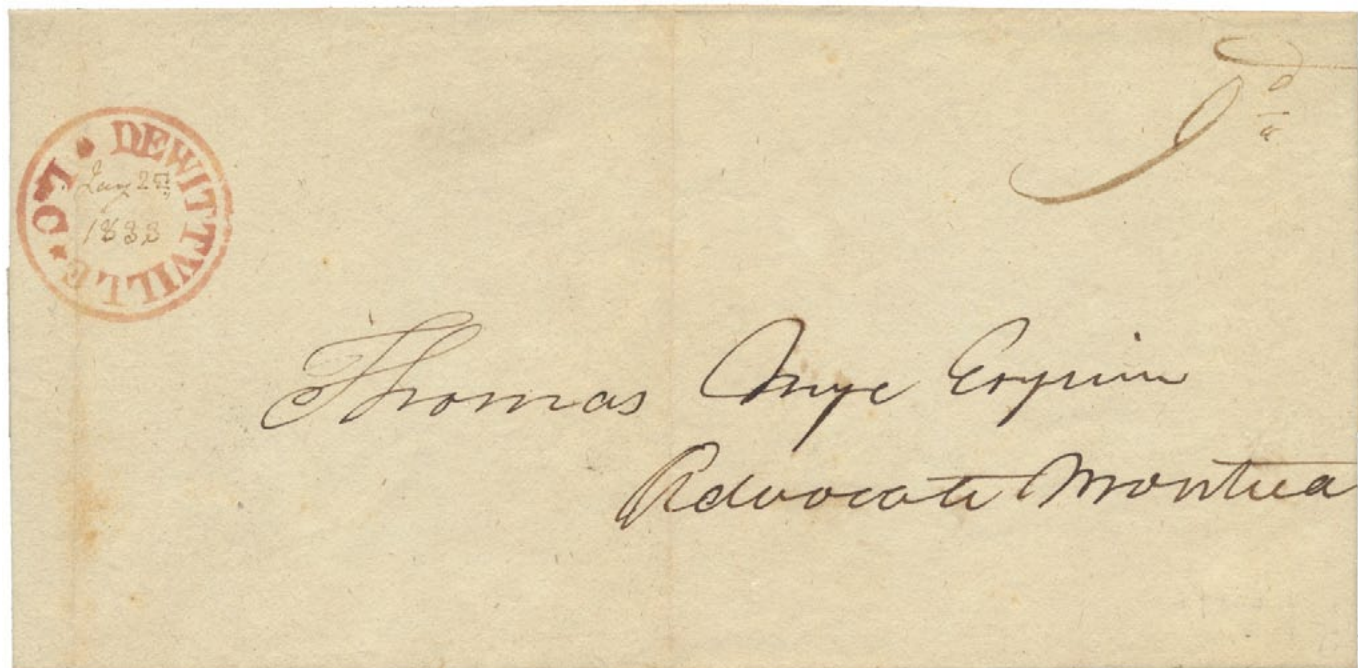 DEWITTVILLE * L.C *
Jany 25th
1833
9d
Thomas Nye Esquire
Advocate Montrea